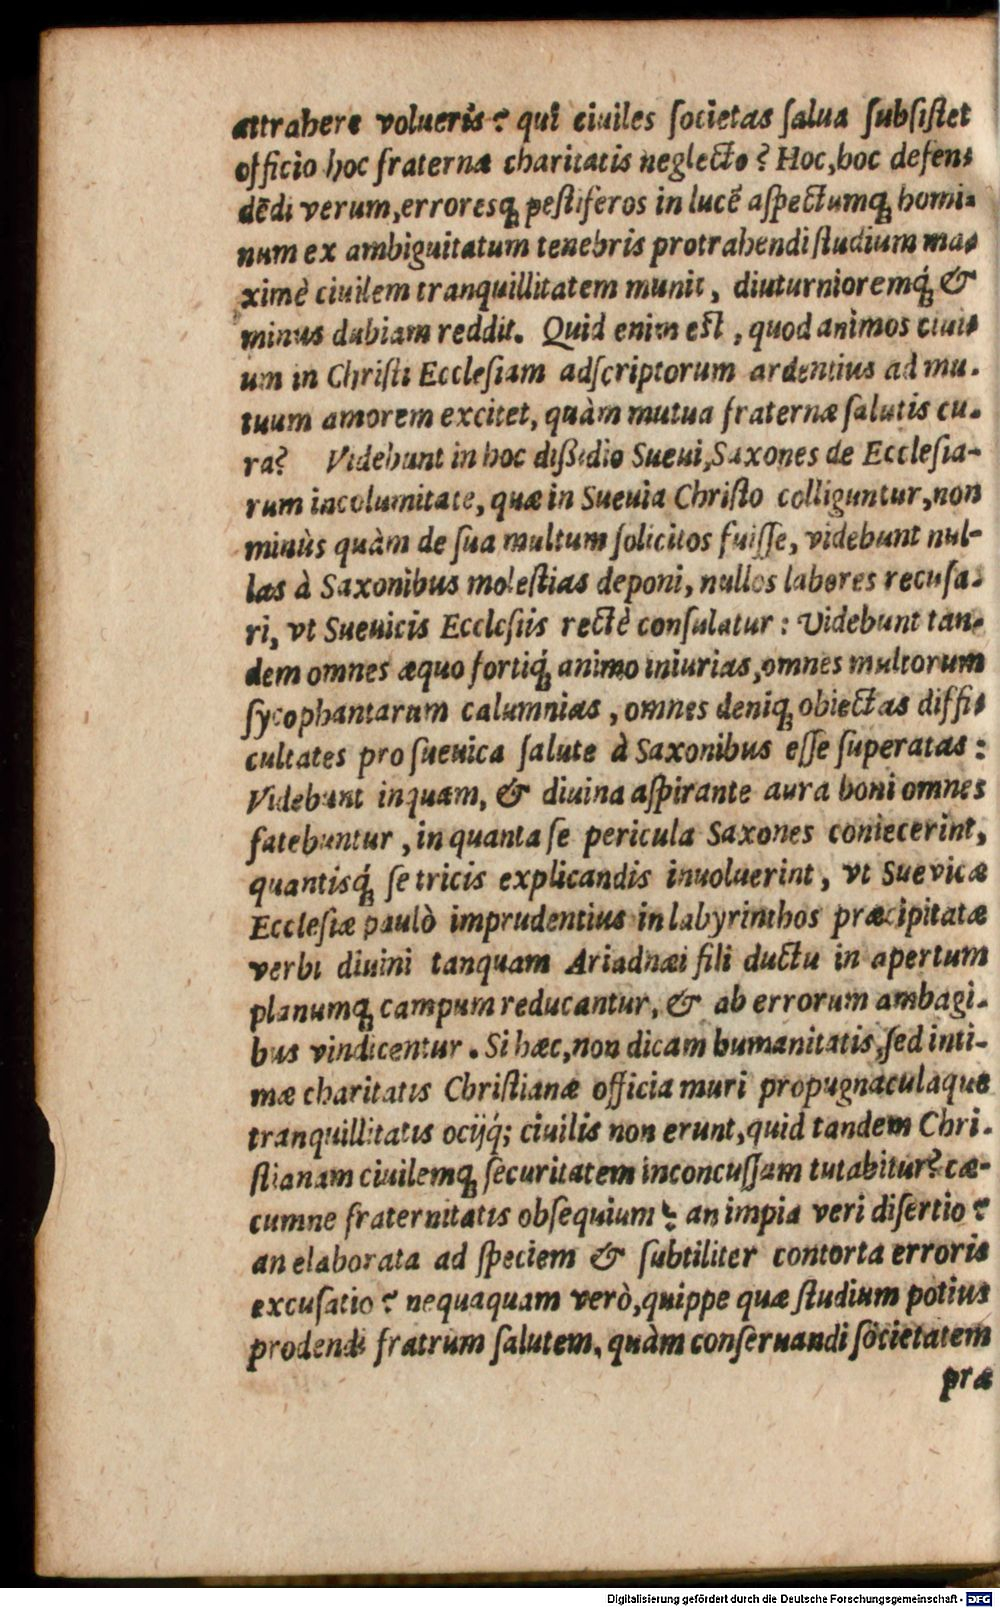 attrahere volueris? quî ciuiles ſocietas ſalua ſubſiſtet
officio hoc fraternæ charitatis neglecto? Hoc, hoc defen-
dēdi verum, erroresq́; peſtiferos in lucē aſpectumq́; homi-
num ex ambiguitatum tenebris protrahendi ſtudium ma-
ximè ciuilem tranquillitatem munit, diuturnioremq́; &
minus dubiam reddit. Quid enim eſt, quod animos ciui-
um in Chriſti Eccleſiam adſcriptorum ardentius ad mu-
tuum amorem excitet, quàm mutua fraternæ ſalutis cu-
ra? Videbunt in hoc diſsidio Sueui, Saxones de Eccleſia-
rum incolumitate, quæ in Sueuia Chriſto colliguntur, non
minùs quàm de ſua multum ſolicitos fuiſſe, videbunt nul-
las à Saxonibus moleſtias deponi, nullos labores recuſa-
ri, vt Sueuicis Eccleſiis rectè conſulatur: Videbunt tan-
dem omnes æquo fortiq́; animo iniurias, omnes multorum
ſycophantarum calumnias, omnes deniq́; obiectas diffi-
cultates pro ſueuica ſalute à Saxonibus eſſe ſuperatas:
Videbunt inquam, & diuina aſpirante aura boni omnes
fatebuntur, in quanta ſe pericula Saxones coniecerint,
quantisq́; ſe tricis explicandis inuoluerint, vt Suevicæ
Eccleſiæ paulò imprudentius in labyrinthos præcipitatæ
verbi diuini tanquam Ariadnæi fili ductu in apertum
planumq́; campum reducantur, & ab errorum ambagi-
bus vindicentur. Si hæc, non dicam humanitatis, ſed inti-
mæ charitatis Chriſtianæ officia muri propugnaculaque
tranquillitatis ocijq́; ciuilis non erunt, quid tandem Chri-
ſtianam ciuilemq́; ſecuritatem inconcuſſam tutabitur? cæ-
cumne fraternitatis obſequium? an impia veri diſertio?
an elaborata ad ſpeciem & ſubtiliter contorta erroris
excuſatio? nequaquam verò, quippe quæ ſtudium potius
prodendi fratrum ſalutem, quàm conſeruandi ſocietatem
præ
Digitalisierung gefördert durch die Deutsche Forschungsgemeinschaft - DFG